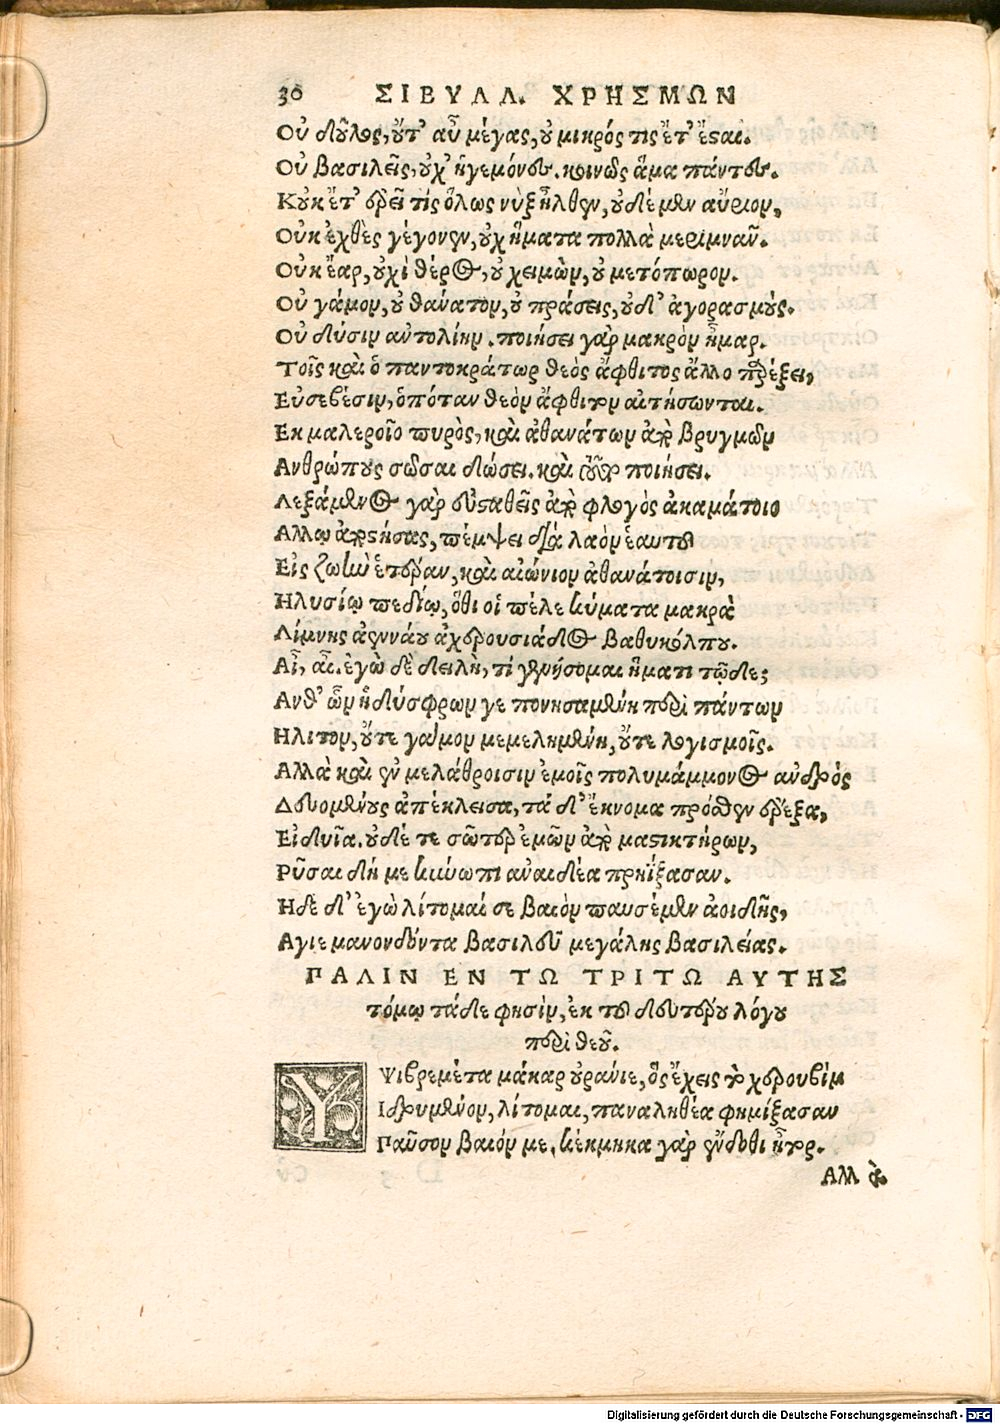 30 ΣΙΒΥΛΛ. ΧΡΗΣΜΩΝ
Οὐ δοῦλος, οὔτ' αὖ μέγας, οὐ μικρός τις ἔτ' ἔσαι.
Οὐ βασιλεῖς, οὐχ' ἡγεμόνες. κοινῶς ἅμα πάντες.
Κοὐκ ἔτ' ἐρεῖ τίς ὅλως νὺξ ἦλθεν, οὐδέ μὲν αὔριον,
Οὐκ ἐχθὲς γέγονεν, οὐχ ἤματα πολλὰ μεριμνᾶν.
Οὐκ ἔαρ, οὐχὶ θέρος, οὐ χειμὼν, οὐ μετόπωρον.
Οὐ γάμον, οὐ θάνατον, οὐ πράσεις, οὐδ' ἀγορασμούς.
Οὐ δύσιν αὐτολίην. ποιήσει γὰρ μακρὸν ἦμαρ.
Τοῖς καὶ ὁ παντοκράτωρ θεὸς ἄφθιτος ἄλλο παρέξει,
Εὐσεβέσιν, ὁπόταν θεὸν ἄφθιτον αἰτήσωνται.
Εκ μαλεροῖο πυρὸς, καὶ ἀθανάτων ἀπὸ βρυγμῶν
Ανθρώπους σῶσαι δώσει. καὶ τοῦτο ποιήσει.
Λεξάμενος γὰρ εὐσαθεῖς ἀπὸ φλογὸς ἀκαμάτοιο
Αλλῳ ἀποστήσας, πέμψει διὰ λαὸν ἑαυτοῦ
Εἰς ζωὴν ἑτέραν, καὶ αἰώνιον ἀθανάτοισιν,
Ηλυσίῳ πεδίῳ, ὅθι οἱ πέλε κύματα μακρὰ
Λίμνης ἀεννάου ἀχερουσιάδος βαθυκόλπου.
Αἶ, αἶ. ἐγὼ δὲ δειλὴ, τί γενήσομαι ἤματι τῷδε;
Ανθ' ὧν ἡ δύσφρων γε πονησαμένη περὶ πάντων
Ηλιτον, οὔτε γάμον μεμελημένη, οὔτε λογισμοῖς.
Αλλὰ καὶ ἐν μελάθροισιν ἐμοῖς πολυμάμμονος ἀνδρὸς
Δευομένους ἀπέκλεισα, τά δ' ἔκνομα πρόσθεν ἔρεξα,
Εἰδυῖα. οὐδέ τε σῶτερ ἐμῶν ἀπὸ μαστικτήρων,
Ρῦσαι δή με κύνωπι ἀναιδέα πρηΐξασαν.
Ηδε δ' ἐγὼ λίτομαί σε βαιὸν παυσέμεν ἀοιδῆς,
Αγιε μανονδόντα βασιλεῦ μεγάλης βασιλείας.
ΠΑΛΙΝ ΕΝ ΤΩ ΤΡΙΤΩ ΑΥΤΗΣ
τόμῳ τάδε φησὶν, ἐκ τοῦ δευτέρου λόγου
περὶ θεοῦ.
ΥΨιβρεμέτα μάκαρ οὐράνιε, ὃς ἔχεις τὸ χερουβὶμ
Ιδρυμένον, λίτομαι, παναληθέα φημίξασαν
Παῦσον βαιόν με, κέκμηκα γὰρ ἔνδοθι ἦτορ.
Αλλὰ